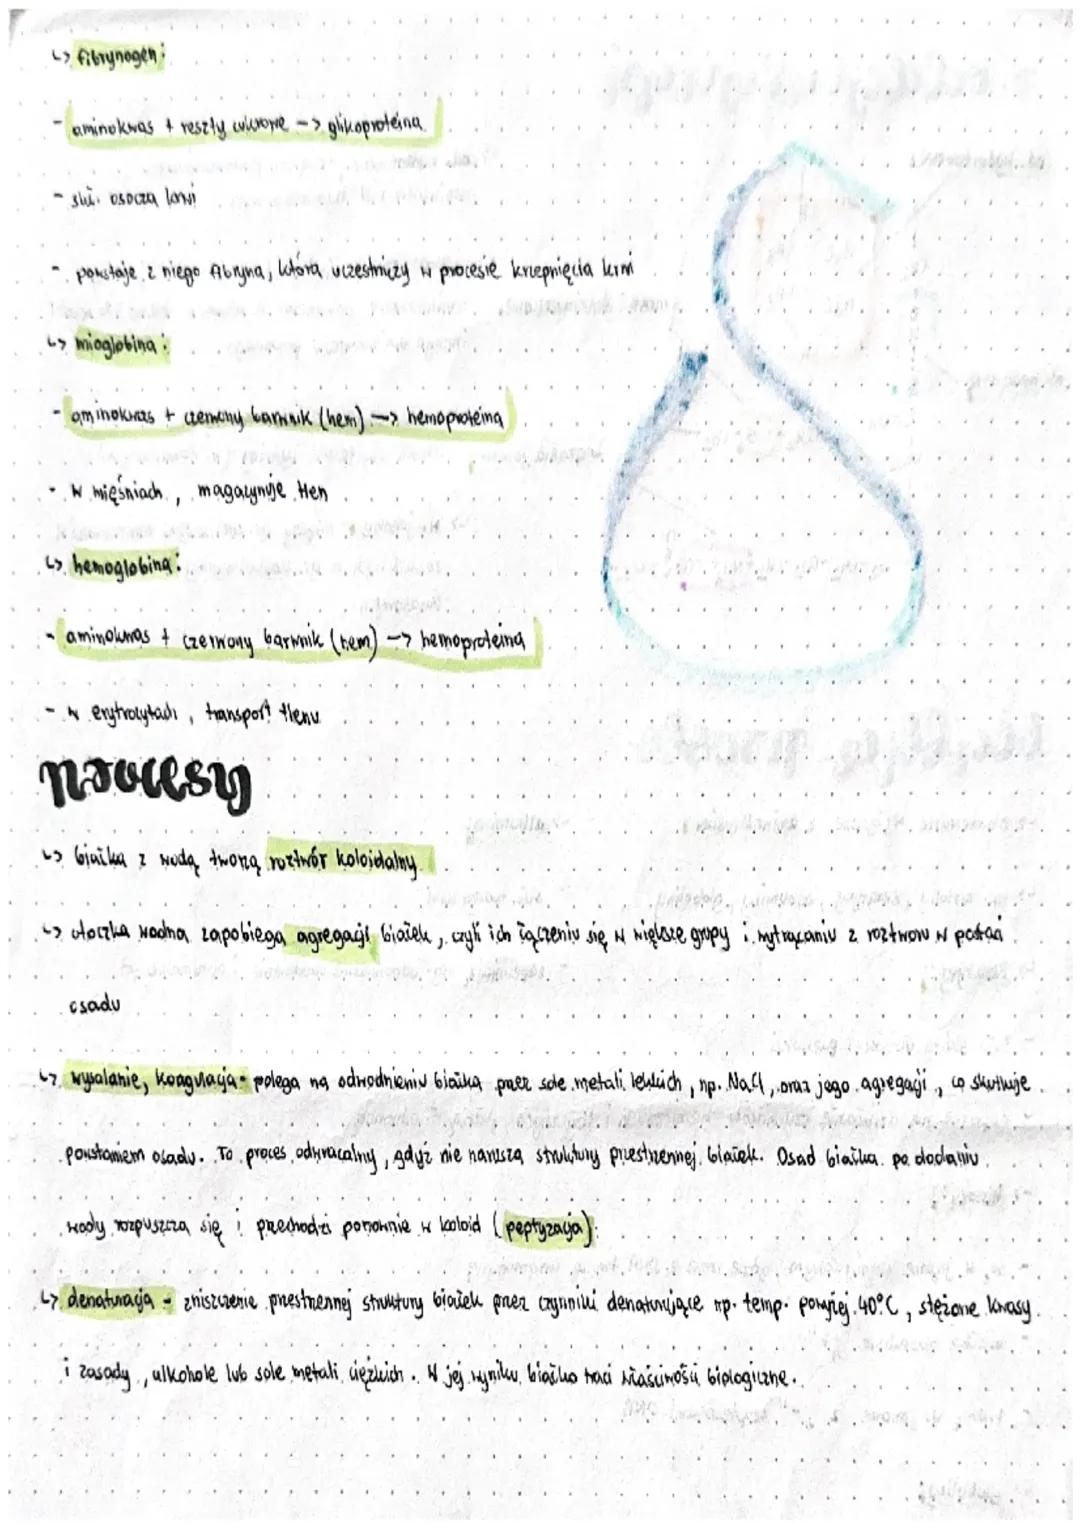 ↳ fibrynogen:
- aminokwas + reszty cukrowe -> glikoproteina
- skł. osocza krwi
- powstaje z niego fibryna, która uczestniczy w procesie krzepnięcia krwi
↳ mioglobina:
- aminokwas + czerwony barwnik (hem) -> hemoproteina
- w mięśniach, magazynuje tlen
↳ hemoglobina:
- aminokwas + czerwony barwnik (hem) -> hemoproteina
- w erytrocytach, transport tlenu
procesy
↳ białka z wodą tworzą roztwór koloidalny
↳ otoczka wodna zapobiega agregacji białek, czyli ich łączeniu się w większe grupy i wytrącaniu z roztworu w postaci
osadu
↳ wysalanie, koagulacja - polega na odwodnieniu białka przez sole metali lekkich, np. NaCl, oraz jego agregacji, co skutkuje
powstaniem osadu. To proces odwracalny, gdyż nie narusza struktury przestrzennej białek. Osad białka po dodaniu
wody rozpuszcza się i przechodzi ponownie w koloid (peptyzacja).
↳ denaturacja - zniszczenie przestrzennej struktury białek przez czynniki denaturujące np. temp. powyżej 40°C, stężone kwasy
i zasady, alkohole lub sole metali ciężkich. W jej wyniku białko traci właściwości biologiczne.